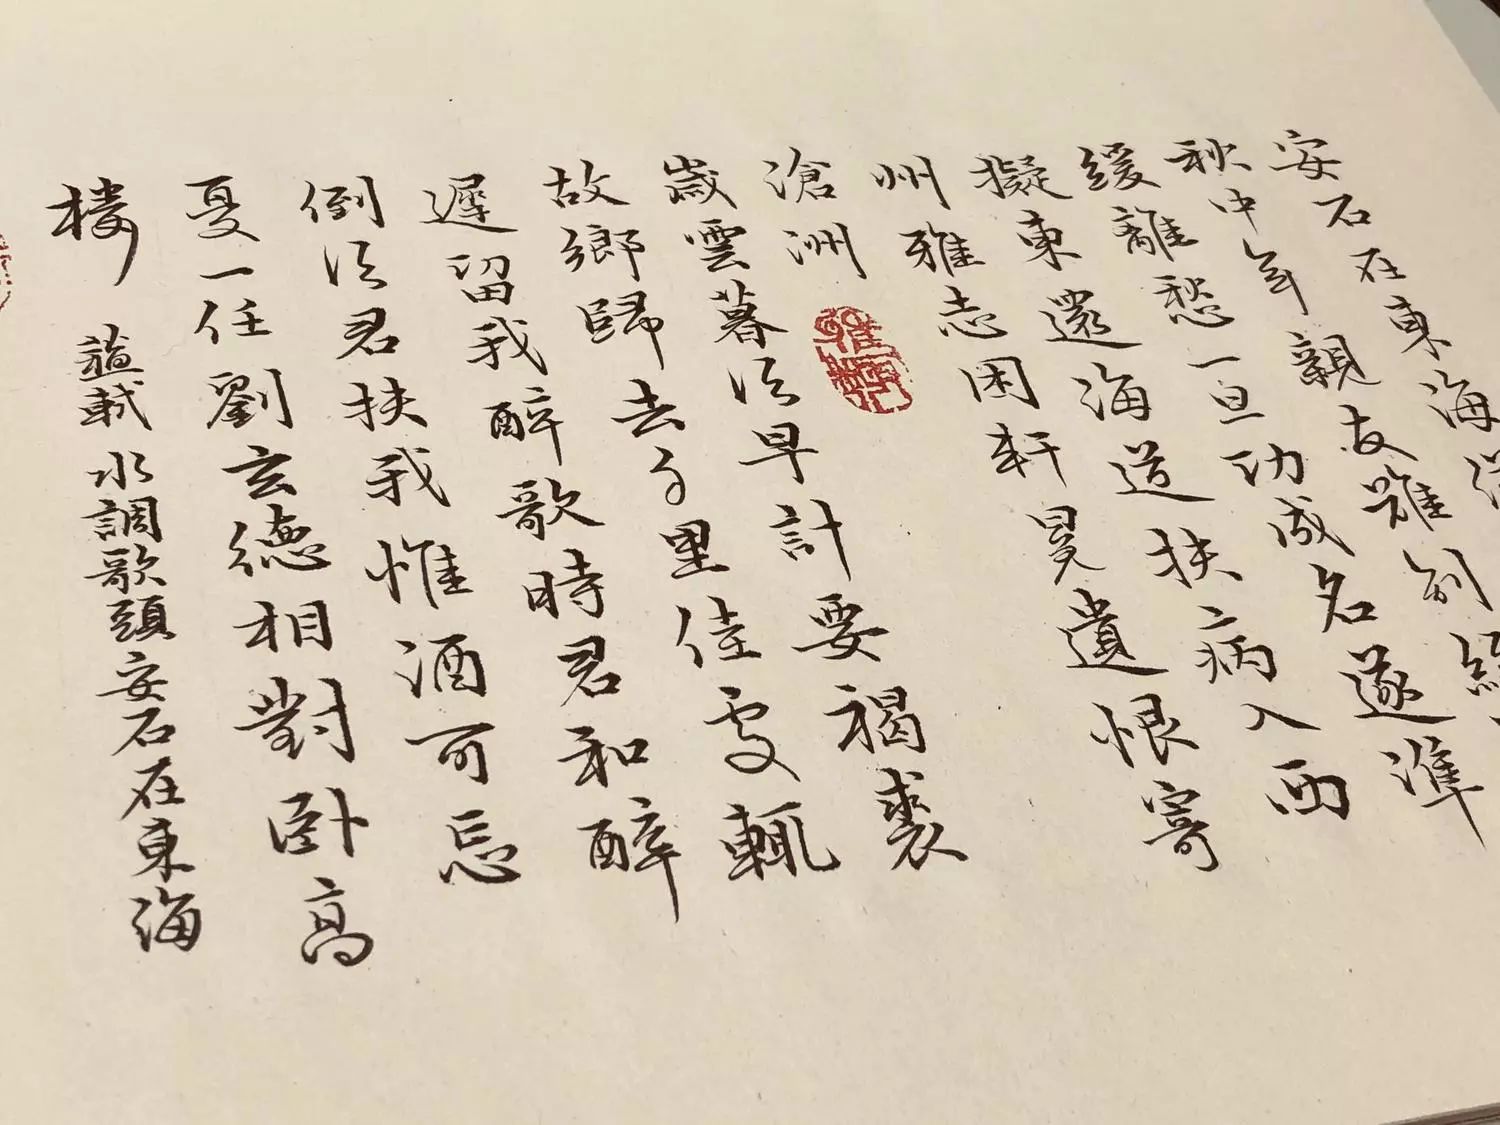 安石在東海
秋中年親友難別
緩離愁一旦功成名遂準
擬東還海道扶病入西
州雅志困軒冕遺恨寄
滄洲
歲雲暮須早計要褐裘
故鄉歸去千里佳處輒
遲留我醉歌時君和醉
倒須君扶我惟酒可忘
憂一任劉玄德相對臥高
楼 蘓軾水調歌頭安石在東海